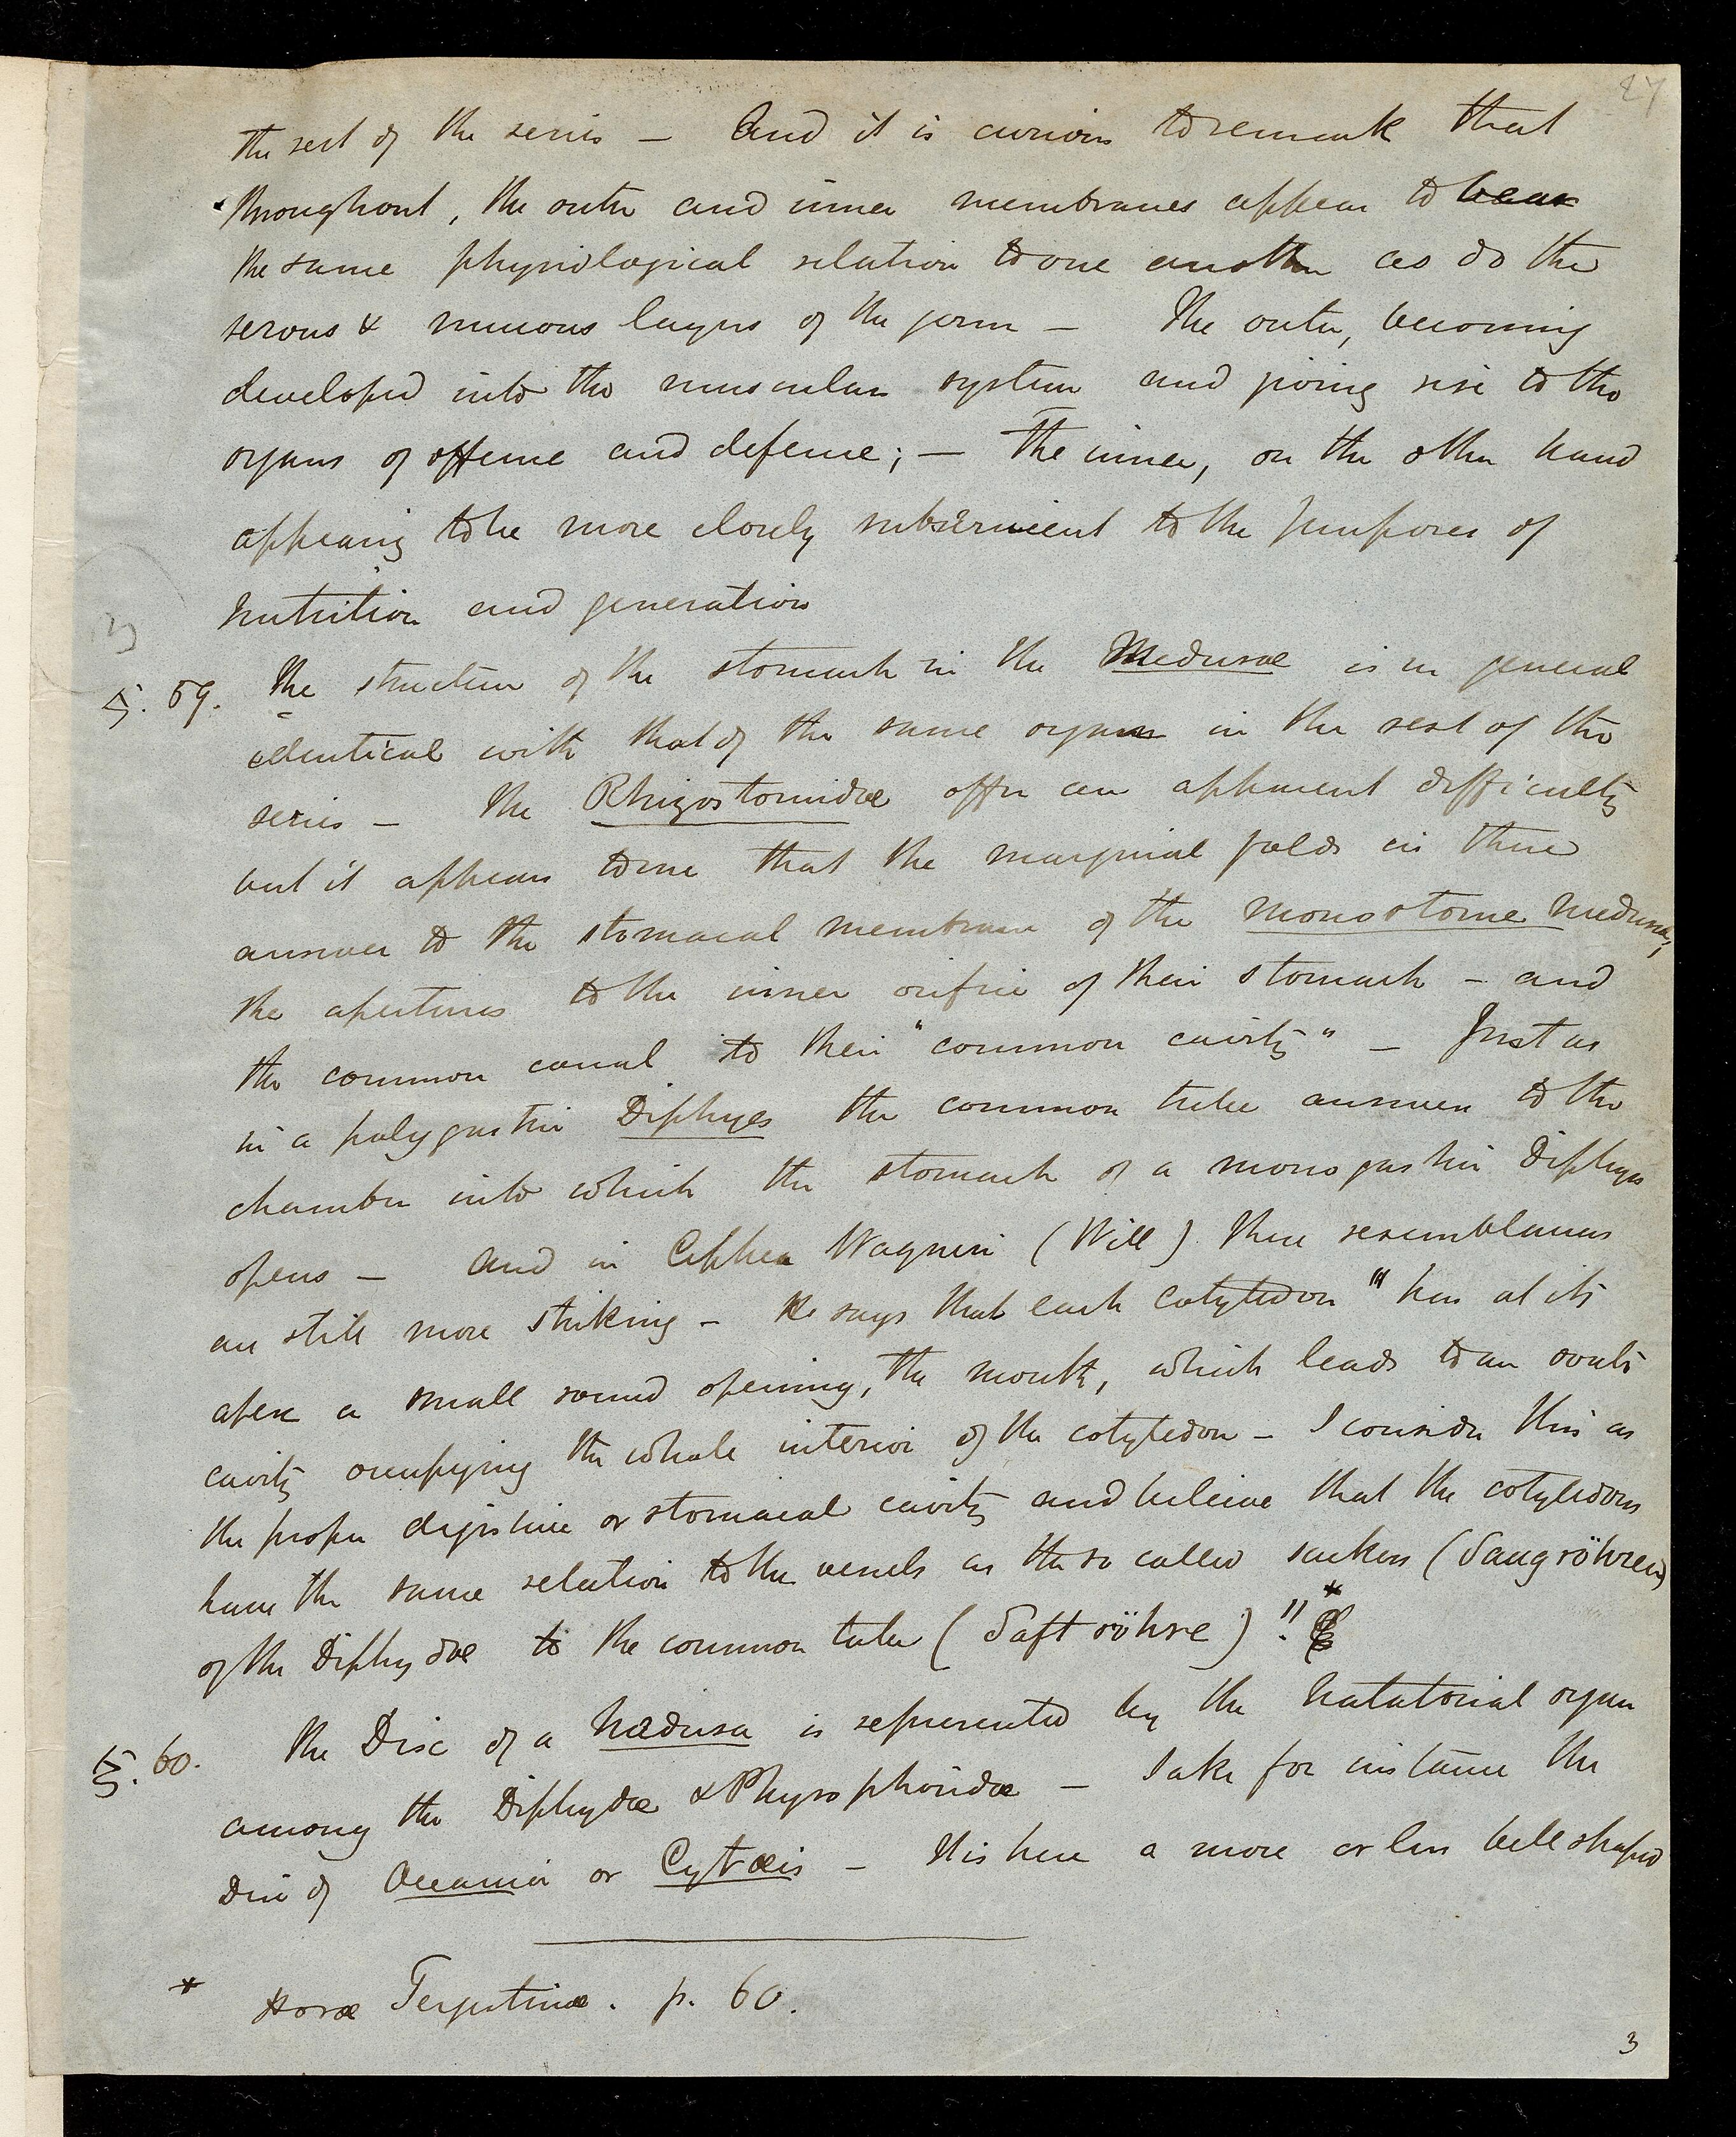 27
the rest of the series – And it is curious to remark that
throughout, the outer and inner membranes appear to bear
the same physiological relation to one another as do the
serous & mucous layers of the germ – The outer, becoming
developed into the muscular system and giving rise to the
organs of offence and defence; – The inner, on the other hand
appearing to be more closely subservient to the purposes of
nutrition and generation
§. 59. The structure of the stomach in the Medusae is in general
identical with that of the same organ in the rest of the
series – The Rhizostomidae offer an apparent difficulty
but it appears to me that the marginal folds in these
answer to the stomacal membrane of the monostome Medusae,
the apertures to the inner orifice of their stomach – and
the common canal to their "common cavity" – Just as
in a polygastric Diphyes the common tube answers to the
chamber into which the stomach of a monogastric Diphyes
opens – And in Cephea Wagneri (Will) these resemblances
are still more striking – He says that each cotyledon "has at its
apex a small round opening, the mouth, which leads to an ovate
cavity occupying the whole interior of the cotyledon – I consider this as
the proper digestive or stomacal cavity and believe that the cotyledons
have the same relation to the vessels as the so called suckers (Saugröhren)
of the Diphydae to the common tube (Saftröhre)". *
§. 60. The Disc of a Medusa is represented by the natatorial organ
among the Diphydae & Physophoridae – Take for instance the
Disc of Oceania or Cytaeis – It is here a more or less bell shaped
* Horae Tergestinae. p. 60.
3